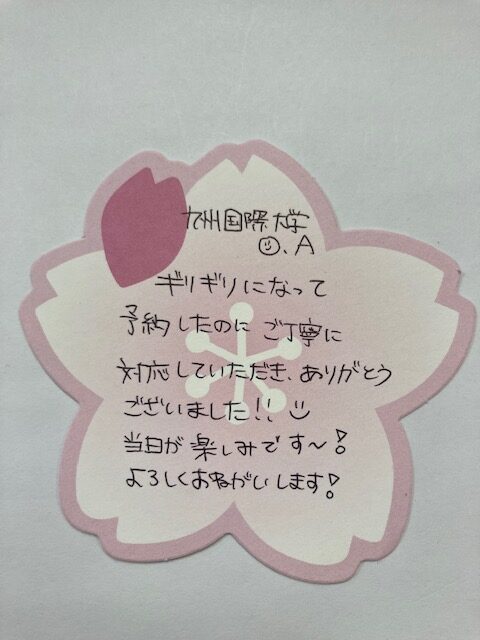 九州国際大学
☺.A
ギリギリになって
予約したのに ご丁寧に
対応していただき、ありがとう
ございました!! ☺
当日が楽しみです〜!
よろしくおねがいします!